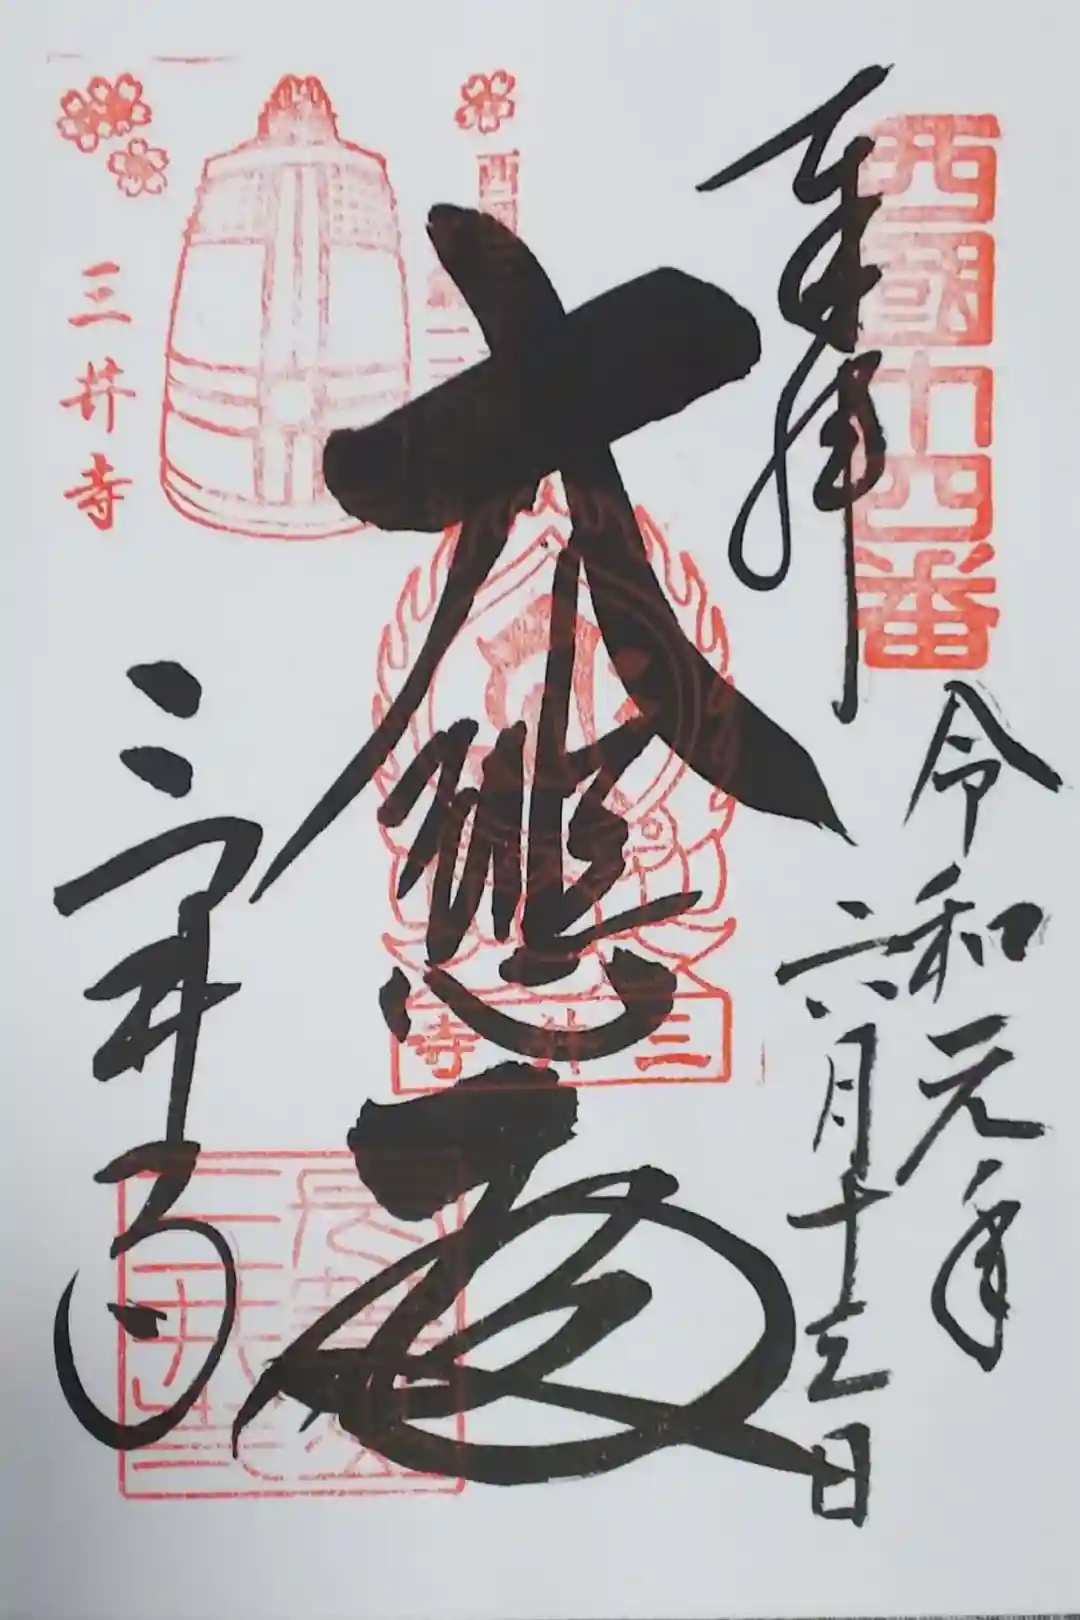 西國十四番
奉拝
令和元年
六月十三日
大悲殿
三井寺
三井寺
三井寺